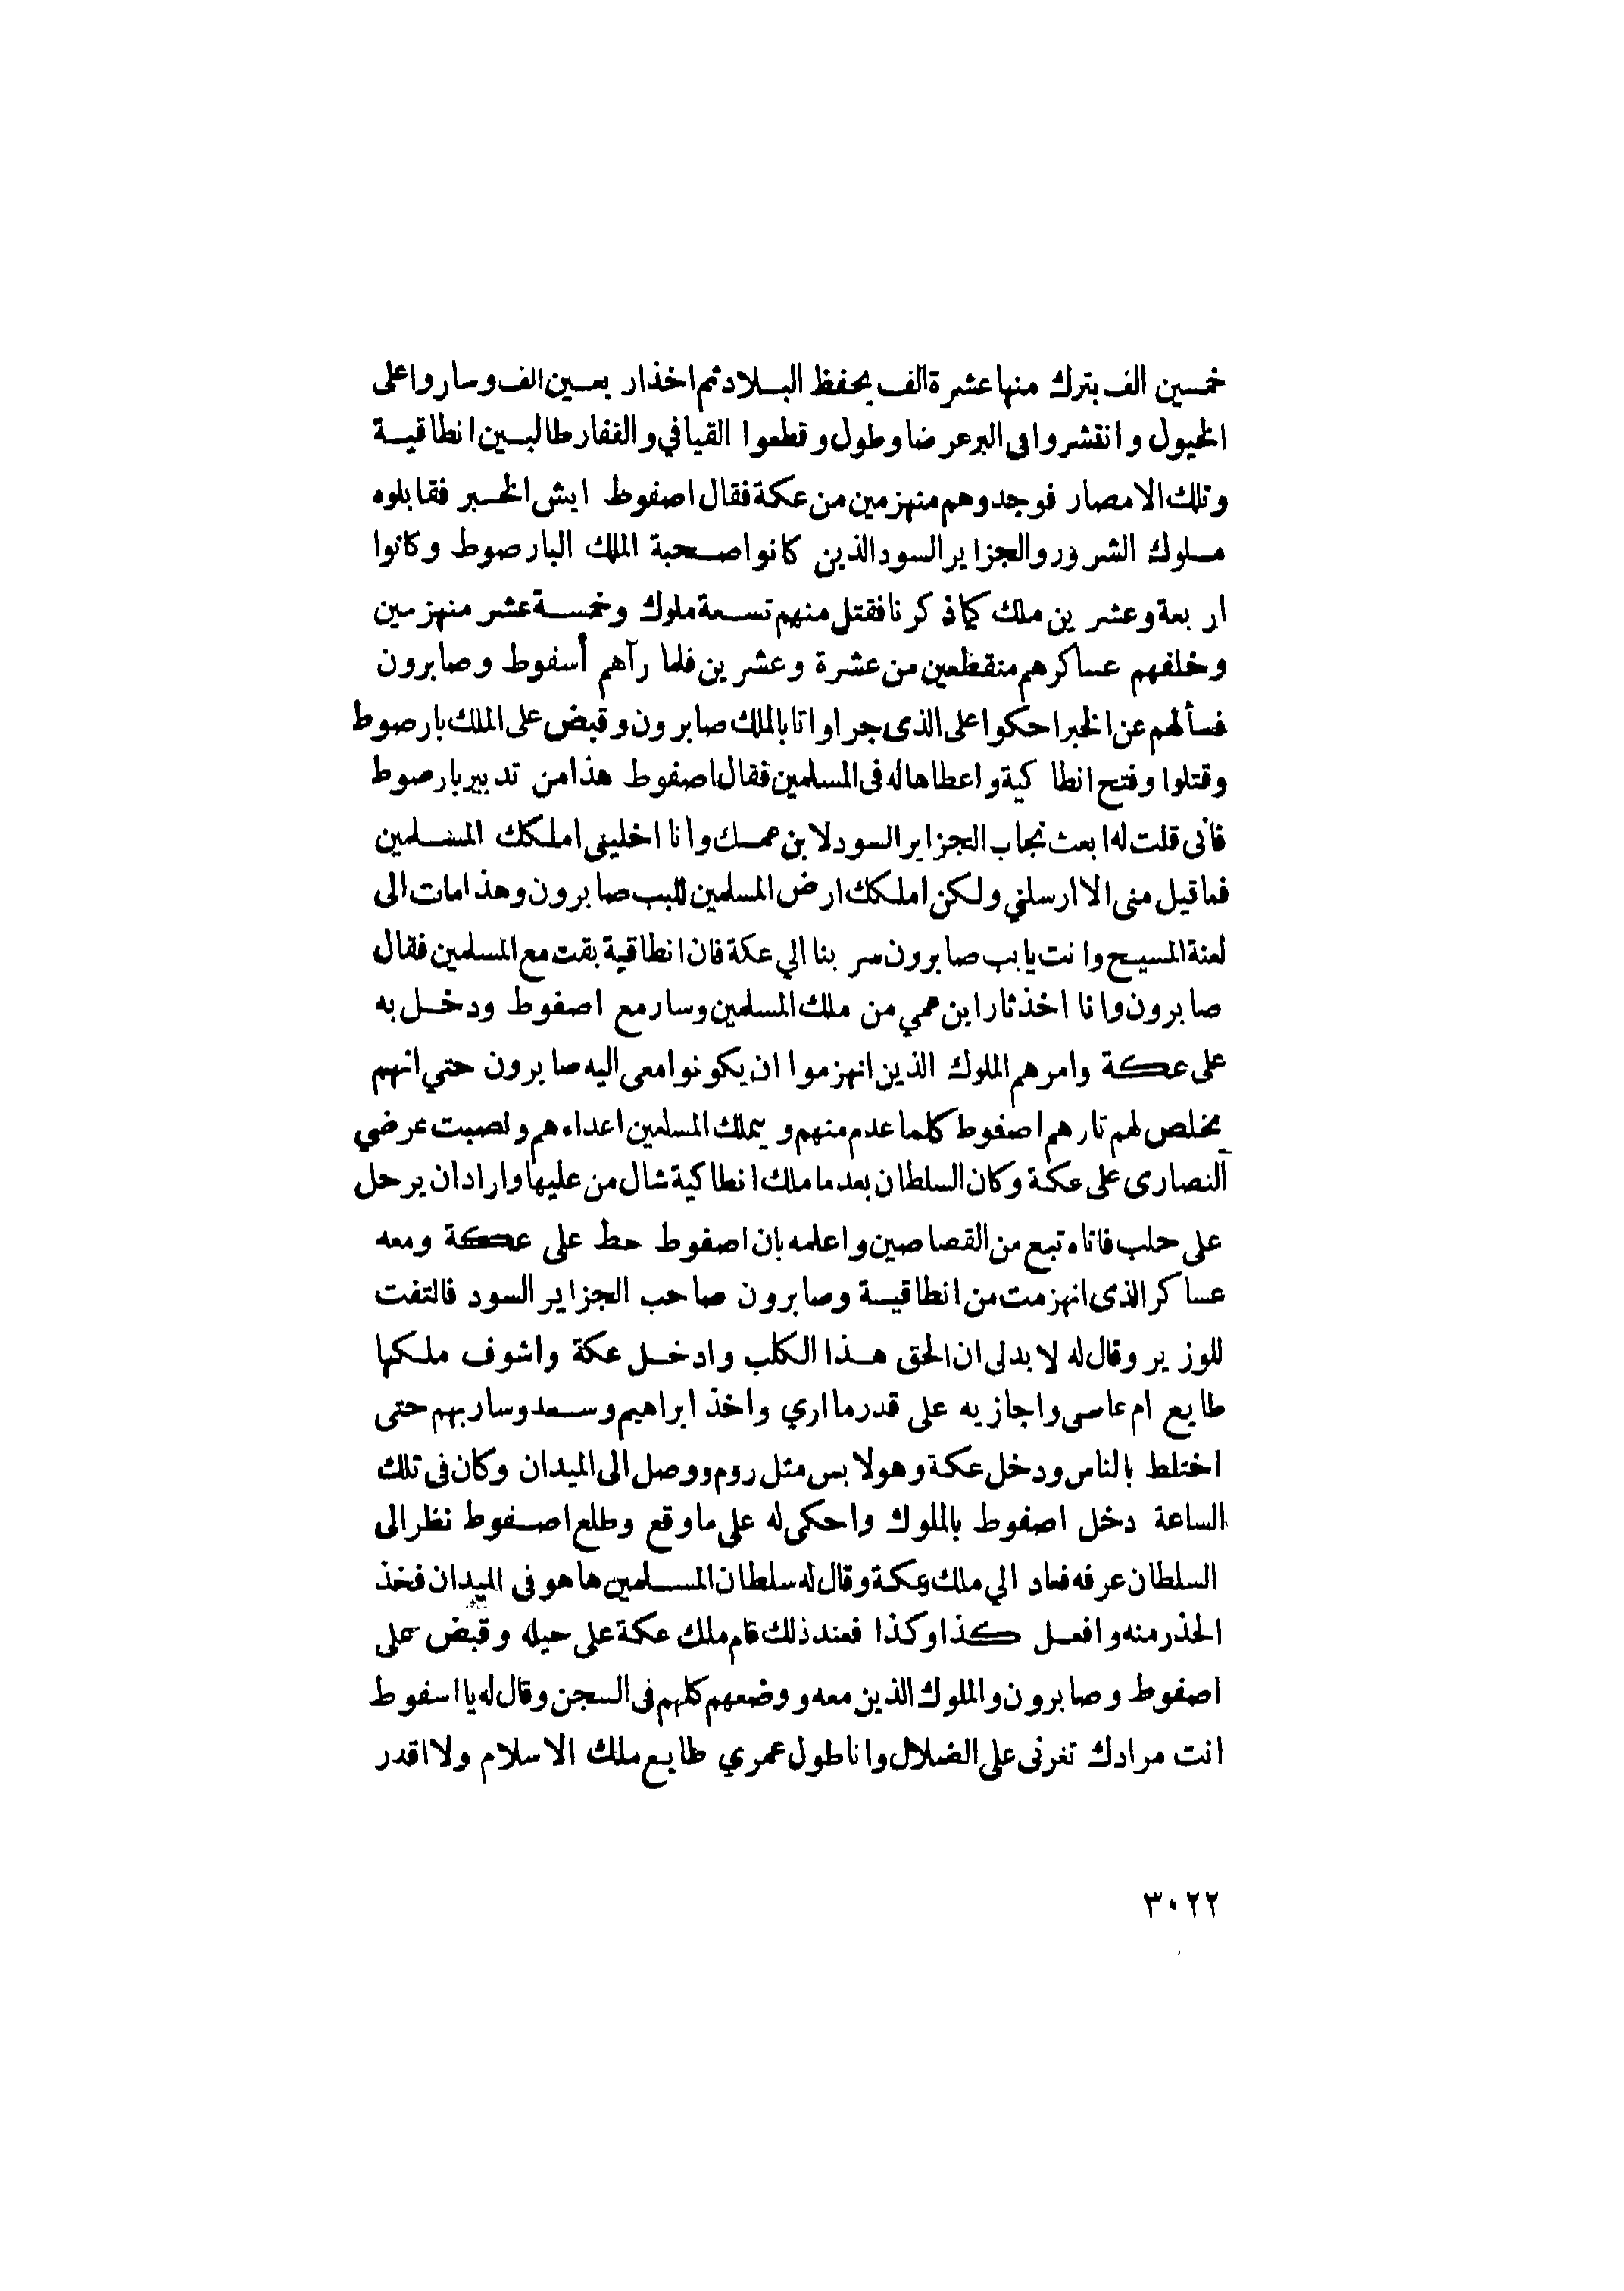 خمسين الف بترك منها عشرة الف يحفظ البلاد ثم اخذ اربعين الف وساروا على
الخيول وانقشروا فى البر عرضا وطول وقطعوا القيافي والففار طالبين انطاقية
وتلك الامصار فوجدوهم منهزمين من عكة فقال اصفوط ايش الخبر فقابلوه
ملوك الشرور والجزاير السود الذين كانوا صحبة الملك البارصوط وكانوا
اربعة وعشرين ملك كما ذكرنا فقتل منهم تسعة ملوك وخمسة عشر منهزمين
وخلفهم عساكرهم منقطعين من عشرة وعشرين فلما رآهم أسفوط وصابرون
فسألهم عن الخبر احكوا على الذى جرا واتا بالملك صابرون وقبض على الملك بارصوط
وقتلوا وفتح انطاكية واعطاها له فى المسلمين فقال اصفوط هذا من تدبير بارصوط
فانى قلت له ابعث نجاب الجزاير السود لابن عمك وانا اخلينى املكك المسلمين
فما قيل منى الا ارسلني ولكن املكك ارض المسلمين للبب صابرون وهذا مات الى
لعنة المسيح وانت يابب صابرون سر بنا الي عكة فان انطاقية بقت مع المسلمين فقال
صابرون وانا اخذ ثار ابن عمي من ملك المسلمين وسار مع اصفوط ودخل به
على عكة وامرهم الملوك الذين انهزموا ان يكونوا معى اليه صابرون حتي انهم
يخلص لهم تارهم اصفوط كلما عدم منهم ويملك المسلمين اعداءهم ونصبت عرضي
النصارى على عكة وكان السلطان بعد ما ملك انطاكية شال من عليها واراد ان يرحل
على حلب فاتاه تبع من القصاصين واعلمه بان اصفوط حط على عكة ومعه
عساكر الذى انهزمت من انطاقية وصابرون صاحب الجزاير السود فالتفت
للوزير وقال له لابد لى ان الحق هذا الكلب وادخل عكة واشوف ملكها
طايع ام عاصى واجازيه على قدر ما اري واخذ ابراهيم وسعد وسار بهم حتى
اختلط بالناس ودخل عكة وهو لابس مثل روم ووصل الى الميدان وكان فى تلك
الساعة دخل اصفوط بالملوك واحكى له على ما وقع وطلع اصفوط نظر الى
السلطان عرفه فعاد الي ملك عكة وقال له سلطان المسلمين ها هو فى الميدان فخذ
الحذر منه وافعل كذا وكذا فعند ذلك قام ملك عكة على حيله وقبض على
اصفوط وصابرون والملوك الذين معه ووضعهم كلهم فى السجن وقال له يا اسفوط
انت مرادك تغرنى على الضلال وانا طول عمري طايع ملك الاسلام ولا اقدر
٣٠٢٢